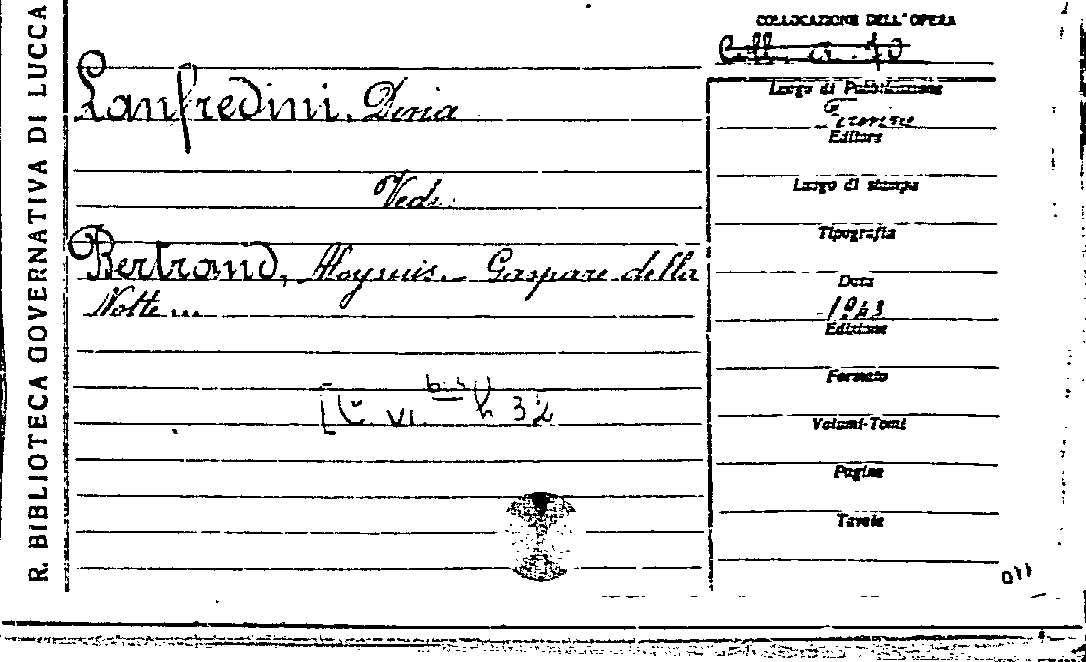 R. BIBLIOTECA GOVERNATIVA DI LUCCA
COLLOCAZIONE DELL'OPERA
Coll. a. 70
Lanfredini, Doria
Vedi
Bertrand, Aloysius. - Gaspare della
Notte ...
Luogo di Pubblicazione
Firenze
Editore
Luogo di stampa
Tipografia
Data
1943
Edizione
Formato
Volumi-Tomi
Pagine
Tavole
VI. 32
011